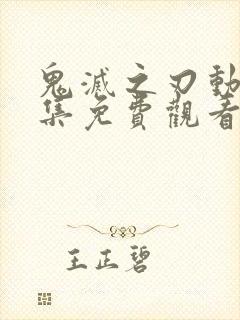 鬼滅之刃動
集免費觀看
王正碧